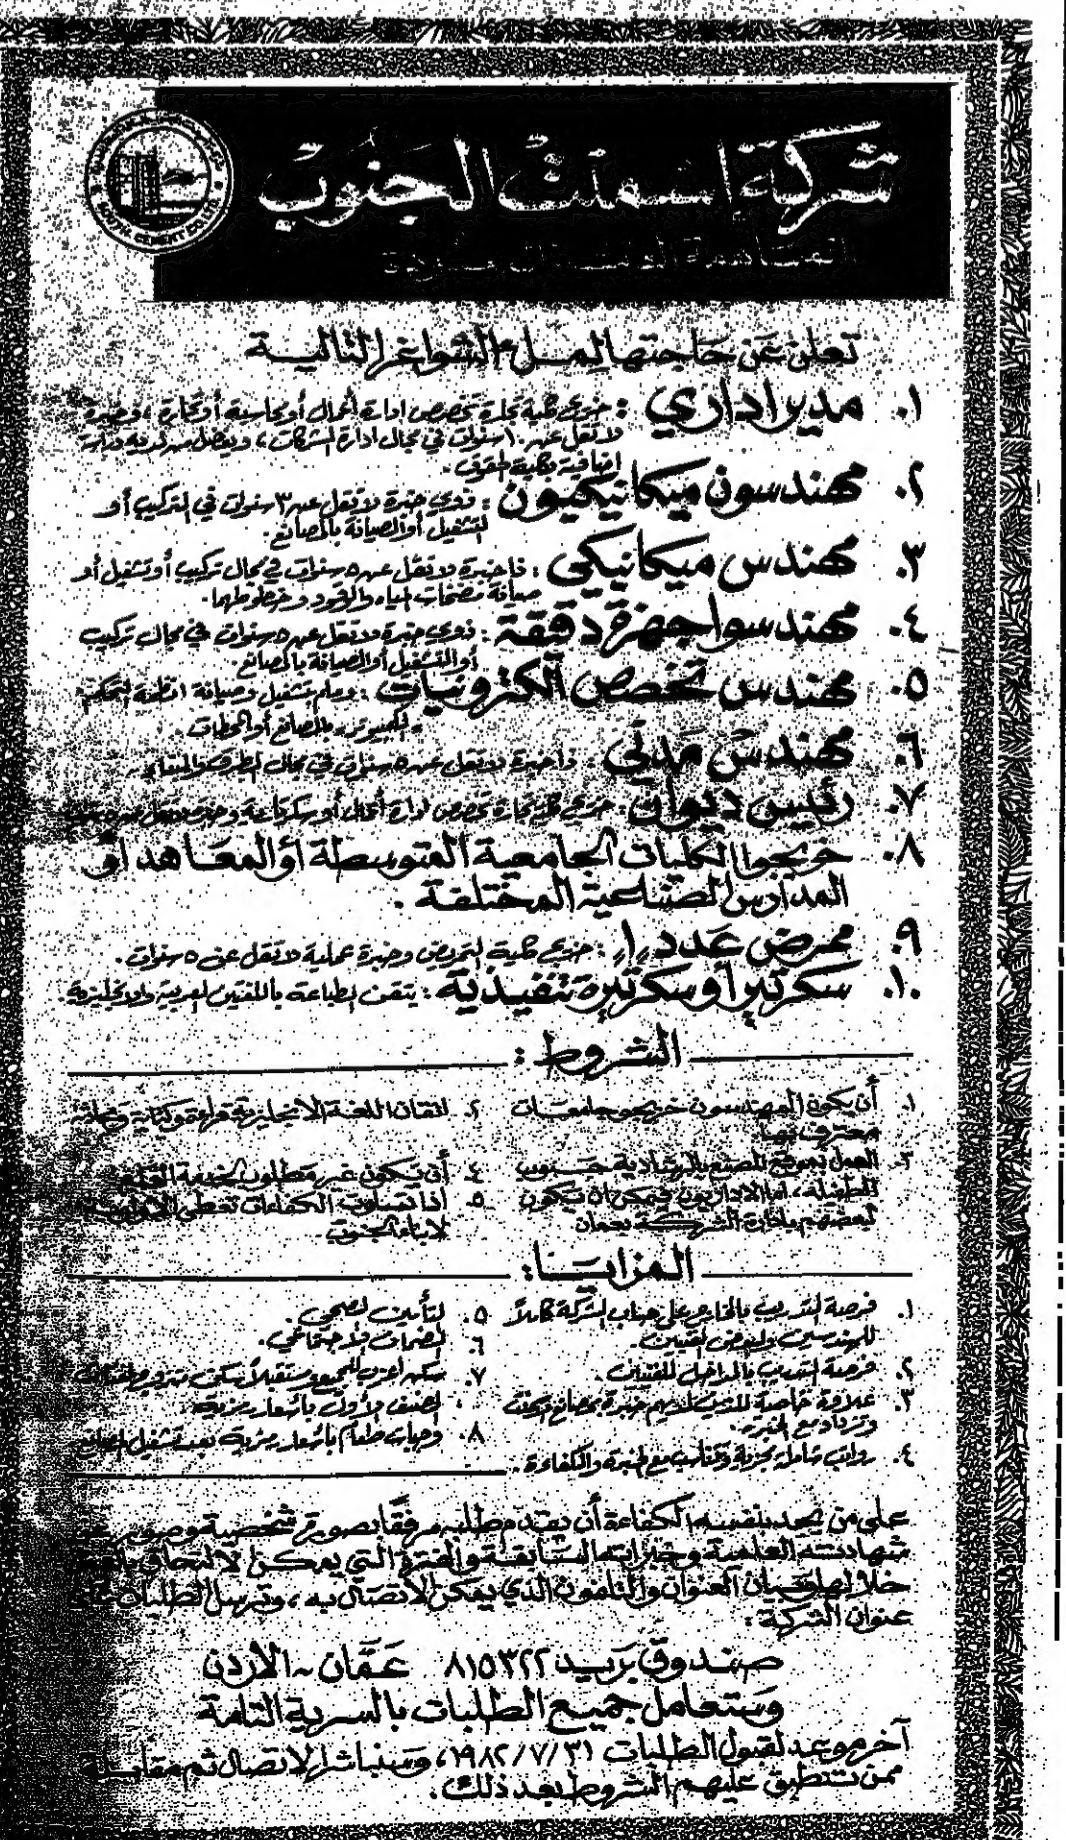 شركة اسمنت الجنوب
المساهمة
SOUTH CEMENT CO. LTD
تعلن عن حاجتها لملء الشواغر التالية
١. مدير اداري : خريج كلية تجارة تخصص ادارة أعمال أو محاسبة أو تجارة ، وخبرة
لا تقل عن ١٠ سنوات في مجال ادارة الشركات ، ويفضل من لديه دراسة
إضافية بكلية الحقوق .
٢. مهندسون ميكانيكيون : ذوي خبرة لا تقل عن ٣ سنوات في التركيب أو
التشغيل أو الصيانة بالمصانع .
٣. مهندس ميكانيكي : ذا خبرة لا تقل عن ٥ سنوات في مجال تركيب أو تشغيل أو
صيانة مضخات المياه والوقود وخطوطها .
٤. مهندسو اجهزة دقيقة : ذوي خبرة لا تقل عن ٥ سنوات في مجال تركيب
أو التشغيل أو الصيانة بالمصانع .
٥. مهندس تخصص الكترونيات : وملم بتشغيل وصيانة انظمة التحكم
بالكمبيوتر بالمصانع أو المحطات .
٦. مهندس مدني : ذا خبرة لا تقل عن ٥ سنوات في مجال الطرق والبناء .
٧. رئيس ديوان : خريج كلية تجارة تخصص ادارة أعمال أو سكرتاريا وخبرة لا تقل عن
٨. خريجوا الكليات الجامعية المتوسطة أو المعاهد أو
المدارس الصناعية المختلفة .
٩. ممرض عدد ١ : خريج كلية التمريض وخبرة عملية لا تقل عن ٥ سنوات .
١٠. سكرتير أو سكرتيرة تنفيذية : يتقن الطباعة باللغتين العربية والانجليزية .
الشروط :
١. أن يكون المهندسون خريجو جامعات
معترف بها
٢. اتقان اللغة الانجليزية قراءة وكتابة
٣. العمل بموقع المصنع بالرشادية جنوب
الطفيلة ، أما الاداريون فيمكن ان يكون
بعضهم بادارة الشركة بعمان
٤. أن يكون غير مطلوب لخدمة العلم
٥. اذا تساوت الكفاءات تعطى الأولوية
لابناء الجنوب .
المزايا :
١. فرصة التدريب بالخارج على حساب الشركة كاملاً
للمهندسين ولبعض الفنيين .
٢. فرصة التدريب بالداخل للفنيين .
٣. علاوة خاصة للذين لديهم خبرة بمصانع الاسمنت
وتزداد مع الخبرة .
٤. رواتب شاملة مجزية وتتناسب مع الخبرة والكفاءة .
٥. التأمين الصحي .
٦. الضمان الاجتماعي .
٧. سكن أعزب للجميع ومستقبلاً سكن متزوج
الصنف الأول بأسعار رمزية .
٨. وجبات طعام بأسعار رمزية بعد تشغيل المصنع
على من يجد بنفسه الكفاءة أن يقدم طلبه مرفقا بصورة شخصية وصورة عن
شهادته العلمية وخبراته السابقة والفترة التي يمكن الالتحاق بالعمل
خلالها وبيان العنوان والتلفون الذي يمكن الاتصال به ، وترسل الطلبات على
عنوان الشركة :
صندوق بريد ٨١٥٣٢٢ عمان - الأردن
وستعامل جميع الطلبات بالسرية التامة
آخر موعد لقبول الطلبات ٣١/٧/١٩٨٢ ، وسنباشر الاتصال ثم مقابلة
ممن تنطبق عليهم الشروط بعد ذلك .